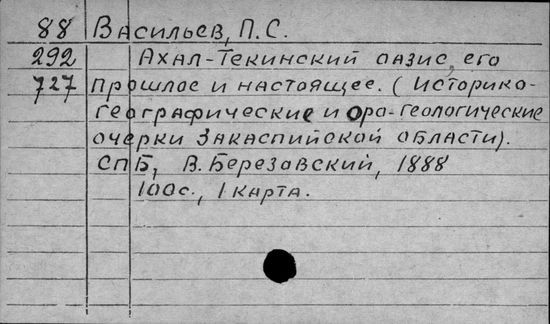 88 Васильев, П.С.
292 Ахал-Текинский оазис, его
727 прошлое и настоящее. (Историко-
географические и оро-геологические
очерки Закаспийской области).
СПБ, В. Березовский, 1888
100с., 1 карта.